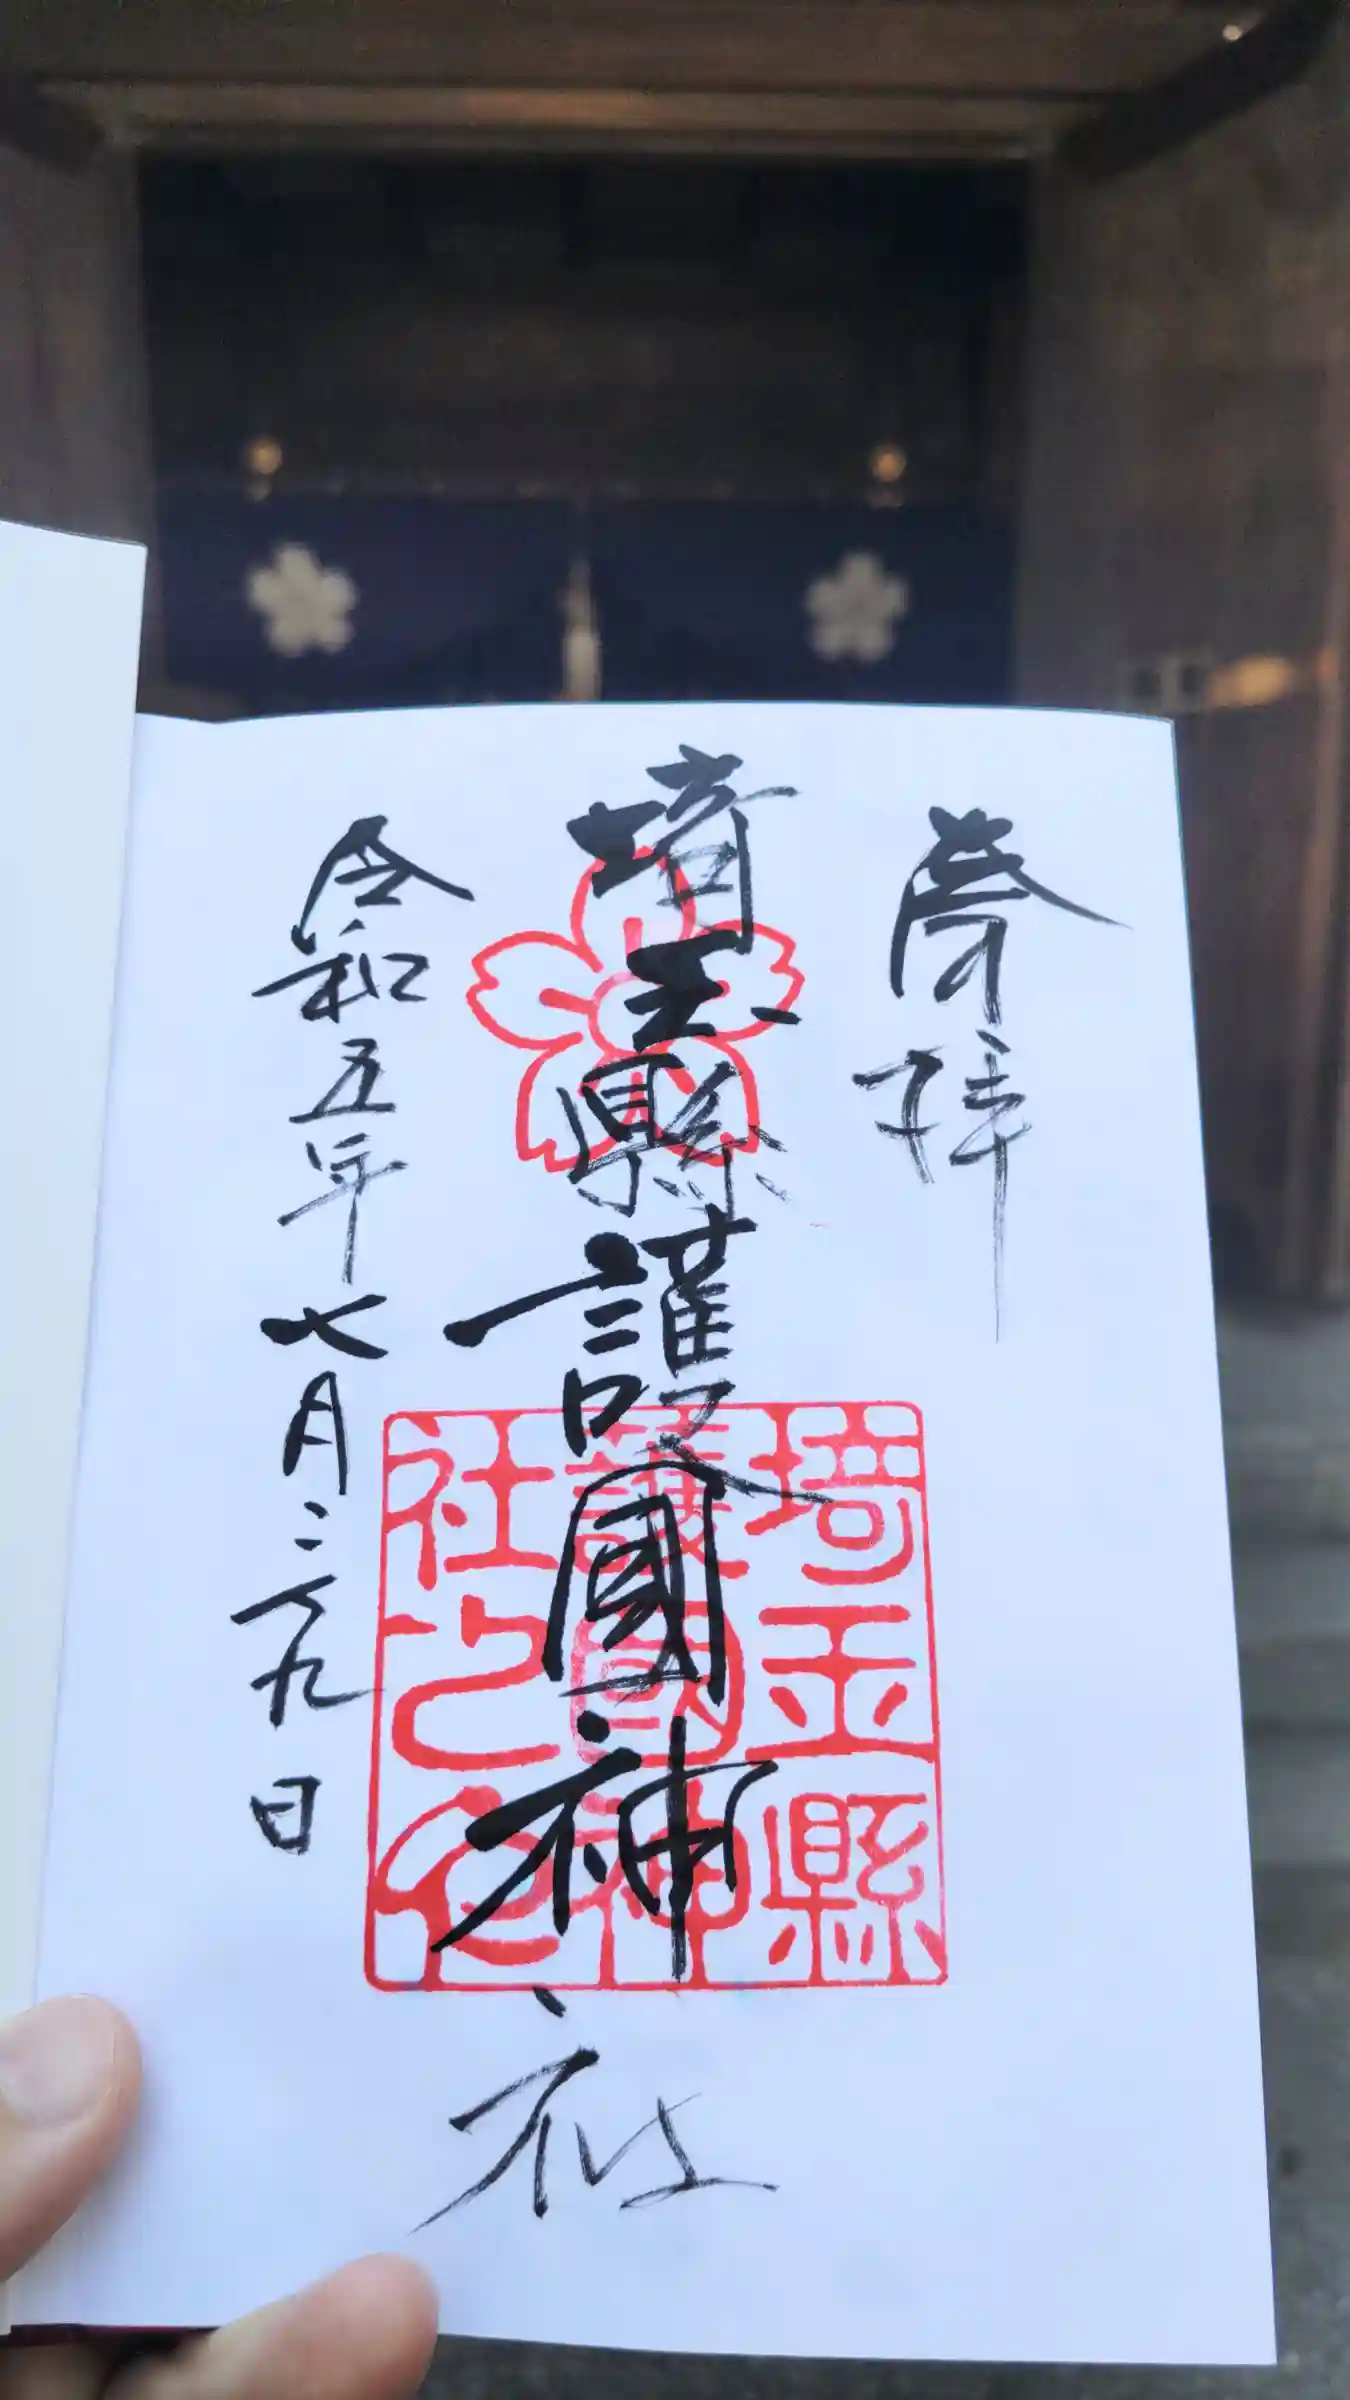 奉拝
埼玉縣護國神社
令和五年七月二十九日
埼玉縣
護國神
社之印